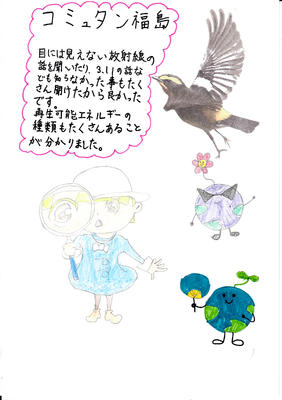 コミュタン福島
目には見えない放射線の
話を聞いたり、3.11の話な
ども知らなかった事もたく
さん聞けたから良かった
です。
再生可能エネルギーの
種類もたくさんあること
が分かりました。